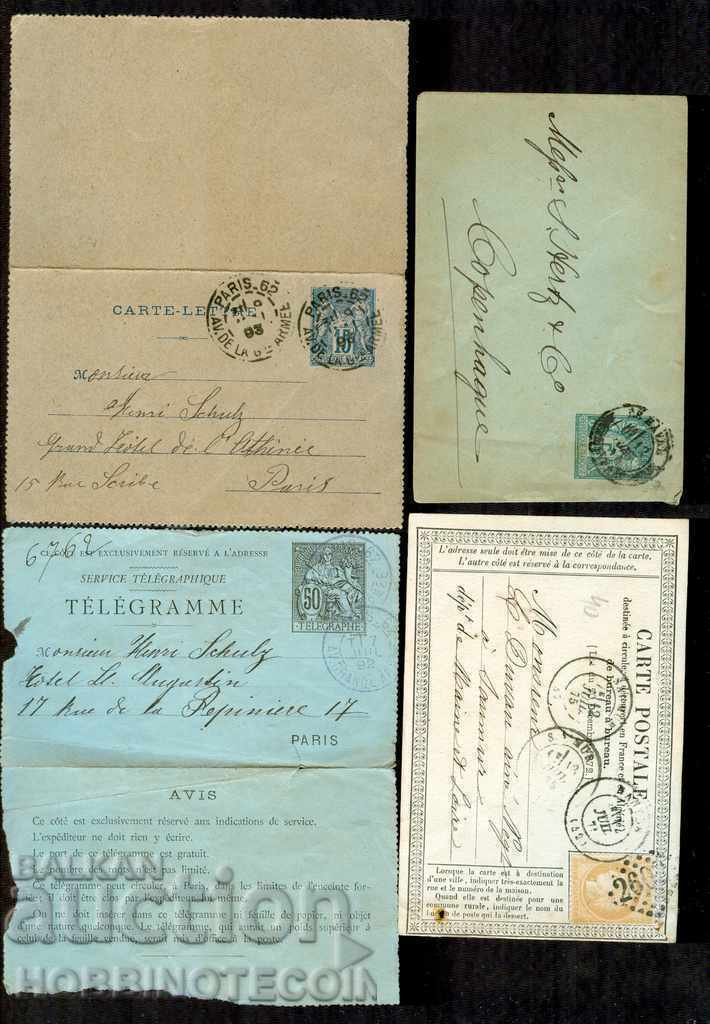 CARTE-LETTRE
PARIS. 62
AV. DE LA GDE ARMÉE
93
PARIS. 62
AV. DE LA GDE ARMÉE
15
Monsieur
Henri Schulz
Grand Hôtel de l'Athénée
15 Rue Scribe
Paris
Messrs S. Hertz & Co
Copenhague
6762
CE CÔTÉ EST EXCLUSIVEMENT RÉSERVÉ A L'ADRESSE
SERVICE TÉLÉGRAPHIQUE
TÉLÉGRAMME
50
TÉLÉGRAPHE
Monsieur Henri Schulz
Hotel St. Augustin
17 Rue de la Pepiniere 17
PARIS
AVIS
Ce côté est exclusivement réservé aux indications de service.
L'expéditeur ne doit rien y écrire.
Le port de ce télégramme est gratuit.
Le nombre des mots n'est pas limité.
Ce télégramme peut circuler, à Paris, dans les limites de l'enceinte for-
tifiée; il doit être clos par l'expéditeur lui-même.
On ne doit insérer dans ce télégramme ni feuille de papier, ni objet
d'une nature quelconque. Le télégramme, qui aurait un poids supérieur à
celui de la feuille vendue, serait mis d'office à la poste.
L'adresse seule doit être mise de ce côté de la carte.
L'autre côté est réservé à la correspondance.
CARTE POSTALE
destinée à circuler à découvert en France et en Algérie,
de bureau à bureau.
40
Monsieur
à Saumur
dépt de Maine et Loire
Lorsque la carte est à destination
d'une ville, indiquer très-exactement la
rue et le numéro de la maison.
Lorsque la carte est destinée pour une
commune rurale, indiquer le nom du
bureau de poste qui la dessert.
BALKAN
auction
HOBBINOTECOIN